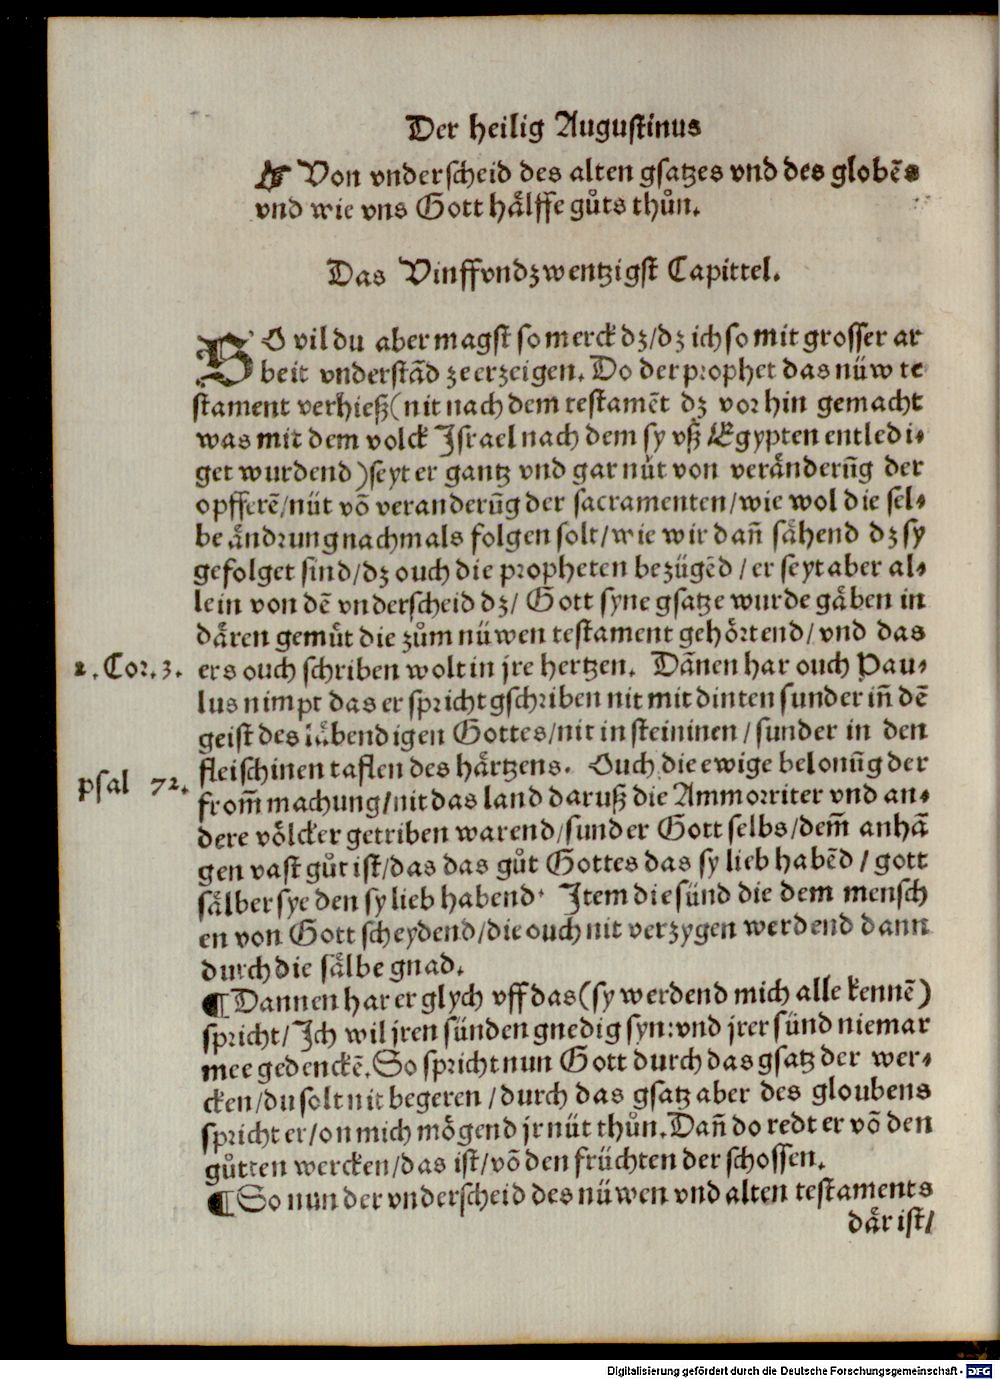 Der heilig Augustinus
☞ Von vnderscheid des alten gsatzes vnd des globēs
vnd wie vns Gott hälffe gůts thůn.
Das Vinffvndzwentzigst Capittel.
SO vil du aber magst so merck dz/dz ich so mit grosser ar
beit vnderstād ze erzeigen. Do der prophet das nüw te
stament verhieß(nit nach dem testamēt dz vor hin gemacht
was mit dem volck Jsrael nach dem sy vß Egypten entledi⸗
get wurdend)seyt er gantz vnd gar nüt von veränderūg der
opfferē/nüt vō veranderūg der sacramenten/wie wol die sel⸗
be ändrung nachmals folgen solt/wie wir dañ sähend dz sy
gefolget sind/dz ouch die propheten bezügēd/er seyt aber al⸗
lein von dē vnderscheid dz/ Gott syne gsatze wurde gäben in
dären gemüt die zům nüwen testament gehörtend/vnd das
2. Cor. 3.
ers ouch schriben wolt in jre hertzen. Dānen har ouch Pau⸗
lus nimpt das er spricht gschriben nit mit dinten sunder iñ dē
geist des läbendigen Gottes/nit in steininen/sunder in den
fleischinen taflen des härtzens. Ouch die ewige belonūg der
psal 72.
from̄ machung/nit das land daruß die Ammorriter vnd an⸗
dere völcker getriben warend/sunder Gott selbs/dem̄ anhā
gen vast gůt ist/das das gůt Gottes das sy lieb habēd/gott
sälber sye den sy lieb habend. Jtem die sünd die dem mensch
en von Gott scheydend/die ouch nit verzygen werdend dann
durch die sälbe gnad.
¶ Dannen har er glych vff das(sy werdend mich alle kennē)
spricht/Jch wil jren sünden gnedig syn:vnd jrer sünd niemar
mee gedenckē. So spricht nun Gott durch das gsatz der wer⸗
cken/du solt nit begeren/durch das gsatz aber des gloubens
spricht er/on mich mögend jr nüt thůn. Dañ do redt er vō den
gůtten wercken/das ist/vō den früchten der schossen.
¶ So nun der vnderscheid des nüwen vnd alten testaments
där ist/
Digitalisierung gefördert durch die Deutsche Forschungsgemeinschaft - DFG